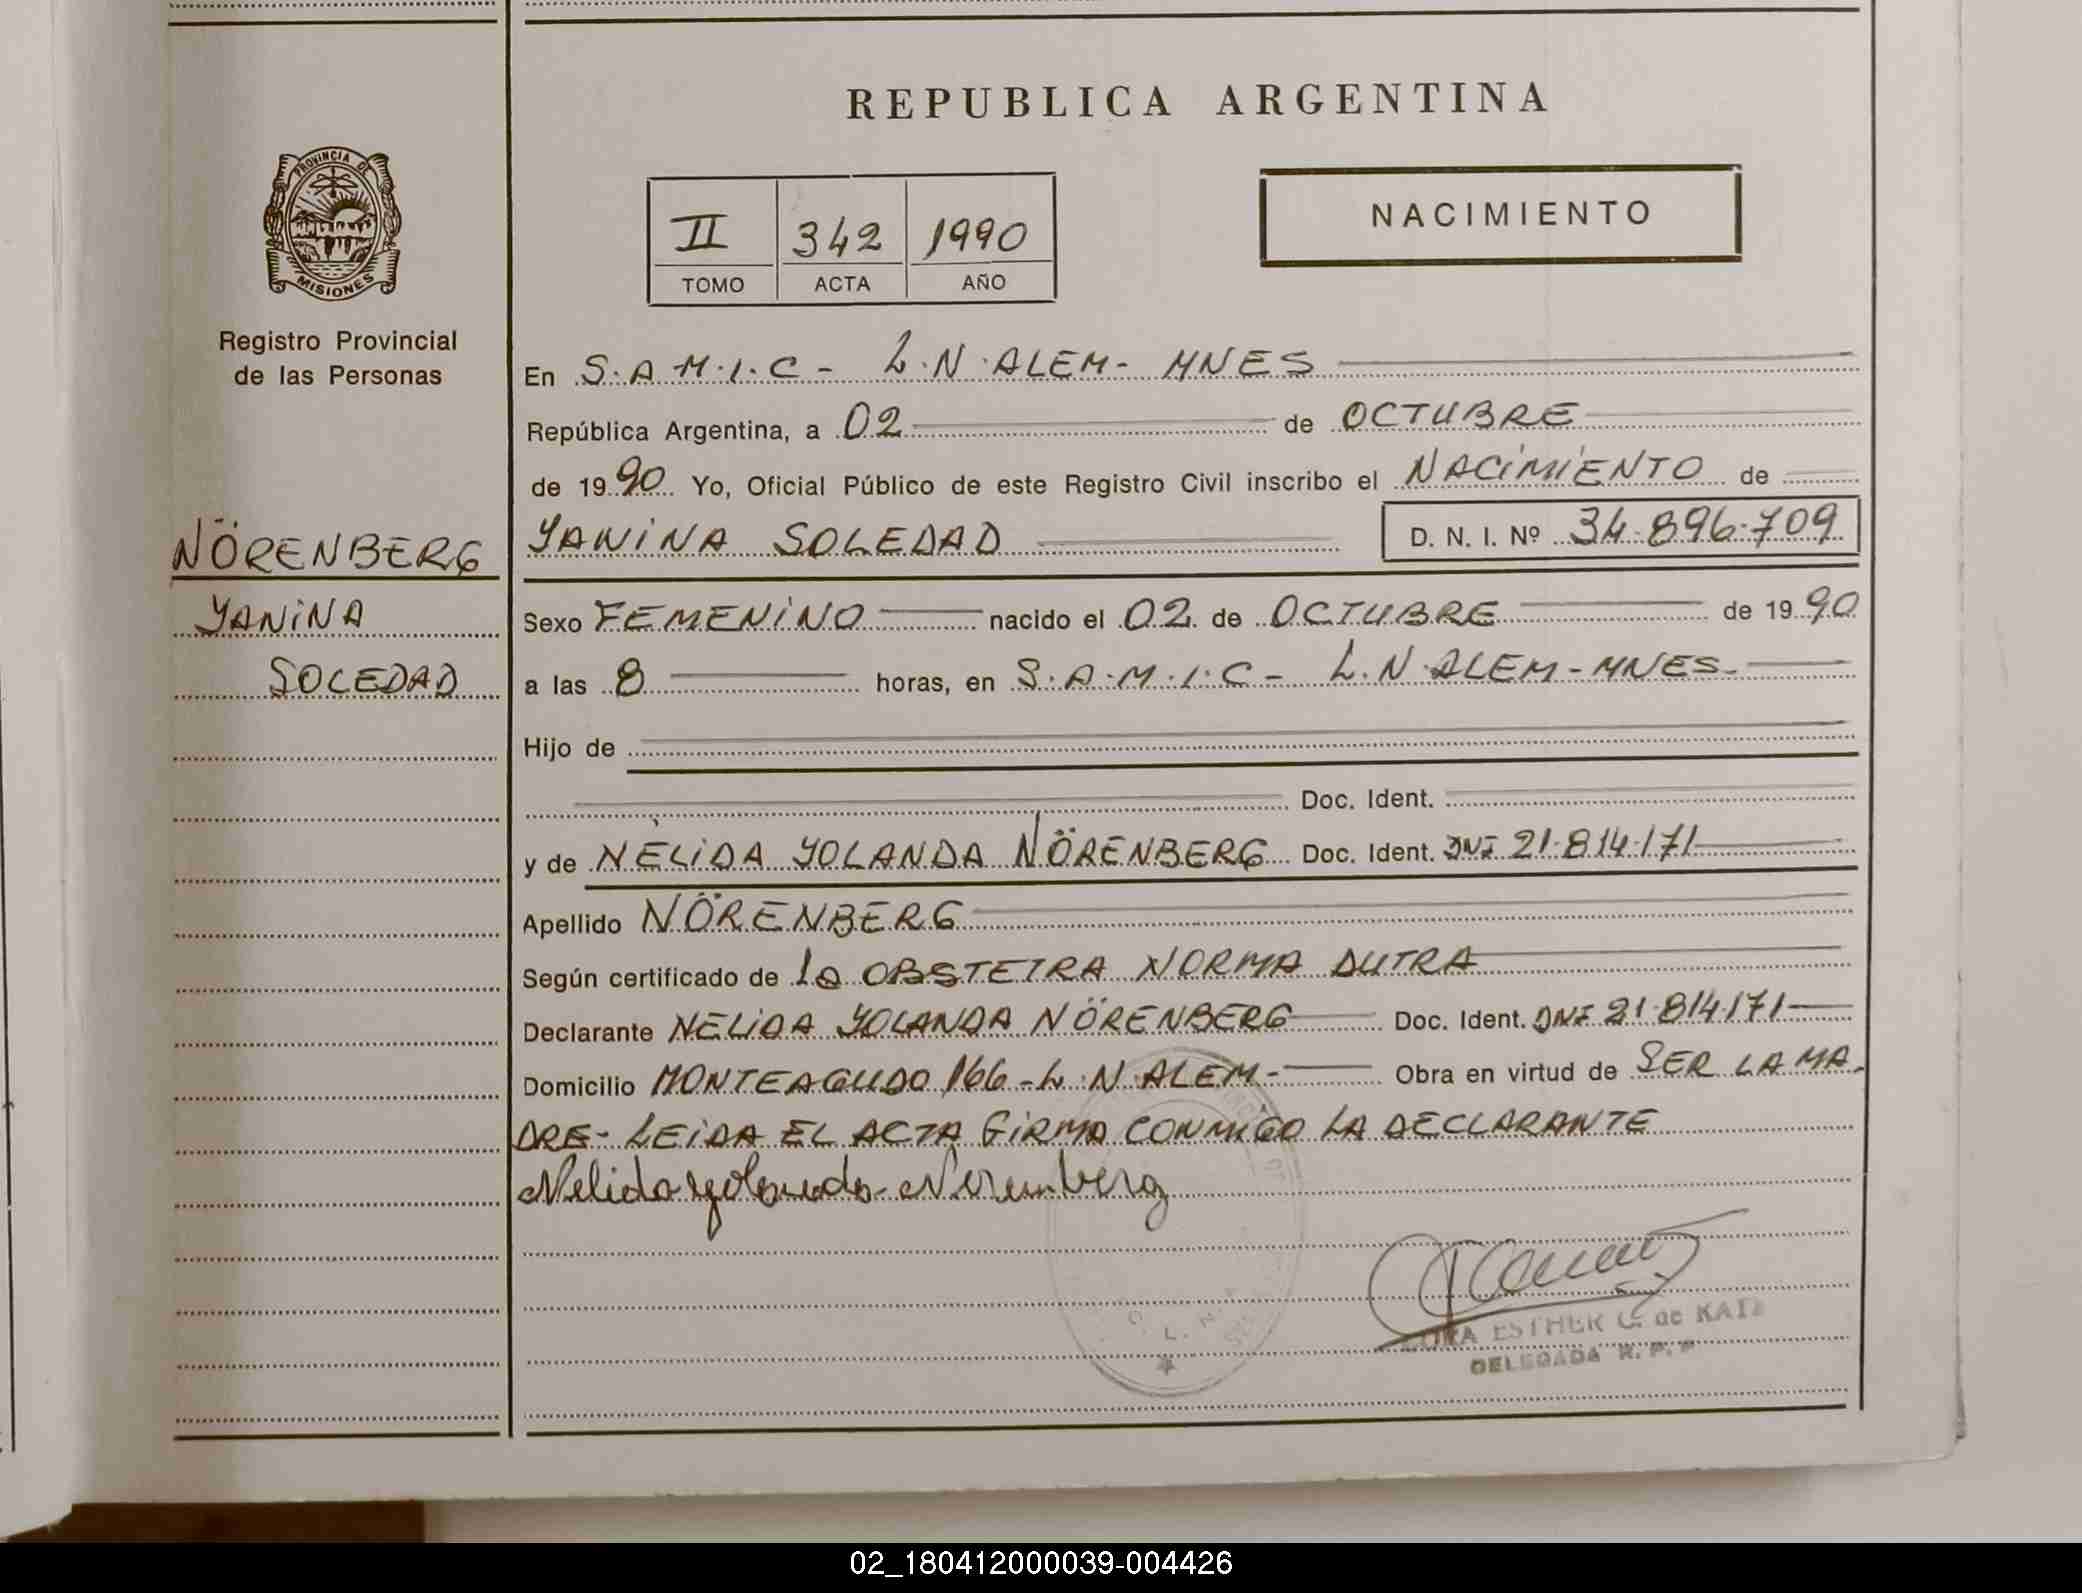 REPUBLICA ARGENTINA
PROVINCIA DE
MISIONES
Registro Provincial
de las Personas
II 342 1990
TOMO ACTA AÑO
NACIMIENTO
En S.A.M.I.C - L.N.ALEM- MNES
República Argentina, a 02 de OCTUBRE
de 1990 Yo, Oficial Público de este Registro Civil inscribo el NACIMIENTO de
YANINA SOLEDAD D. N. I. Nº 34.896.709
NÖRENBERG
YANINA
SOLEDAD
Sexo FEMENINO nacido el 02 de OCTUBRE de 1990
a las 8 horas, en S.A.M.I.C - L.N.ALEM-MNES-
Hijo de
Doc. Ident.
y de NÉLIDA YOLANDA NÖRENBERG Doc. Ident. DNI 21.814.171
Apellido NÖRENBERG
Según certificado de la OBSTETRA NORMA DUTRA
Declarante NELIDA YOLANDA NÖRENBERG Doc. Ident. DNI 21.814.171
Domicilio MONTEAGUDO 166-L.N.ALEM- Obra en virtud de SER LA MA-
DRE- LEIDA EL ACTA FIRMA CONMIGO LA DECLARANTE
Nelida yolanda Norenberg
ESTHER G. de KATZ
DELEGADA R. P. P
02_180412000039-004426